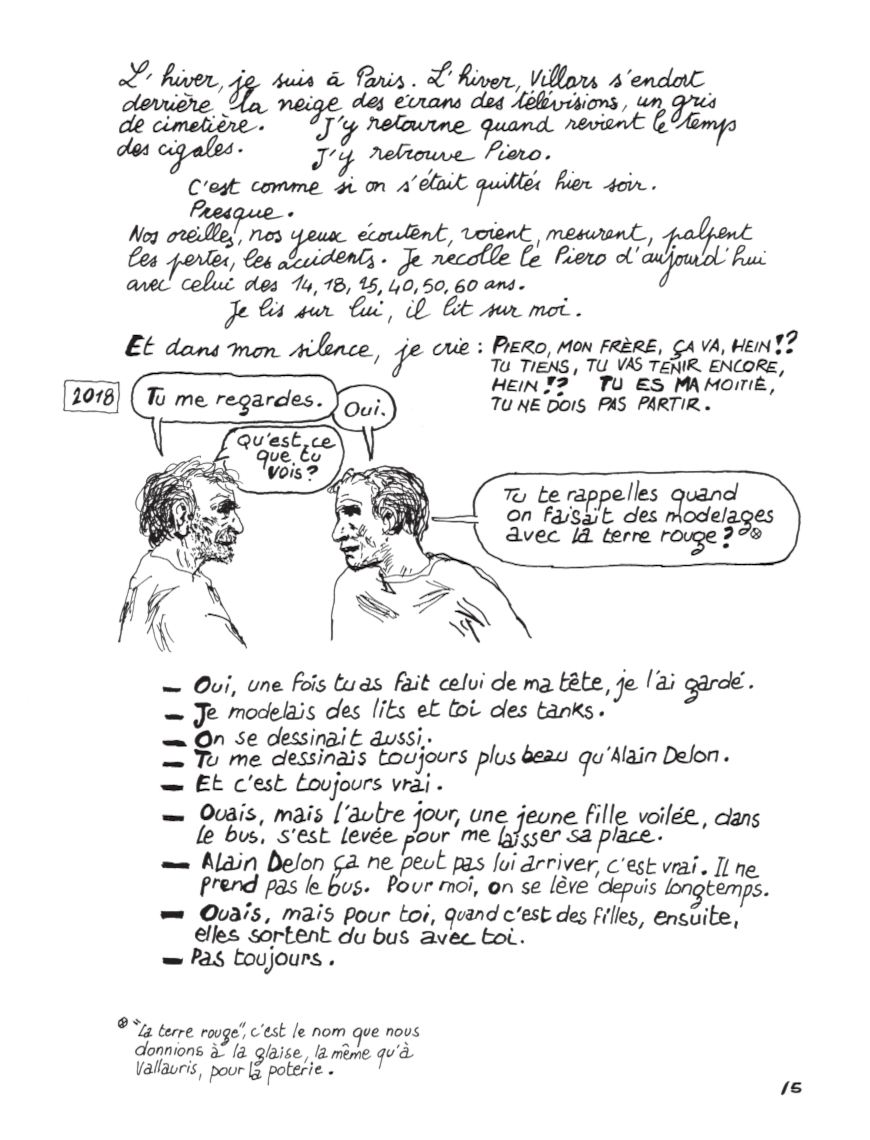 L'hiver, je suis à Paris. L'hiver, Villars s'endort
derrière la neige des écrans des télévisions, un gris
de cimetière. J'y retourne quand revient le temps
des cigales. J'y retrouve Piero.
C'est comme si on s'était quittés hier soir.
Presque.
Nos oreilles, nos yeux écoutent, voient, mesurent, palpent
les pertes, les accidents. Je recolle le Piero d'aujourd'hui
avec celui des 14, 18, 25, 40, 50, 60 ans.
Je lis sur lui, il lit sur moi.
Et dans mon silence, je crie : PIERO, MON FRÈRE, ÇA VA, HEIN !?
TU TIENS, TU VAS TENIR ENCORE,
HEIN !? TU ES MA MOITIÉ,
TU NE DOIS PAS PARTIR.
2018
Tu me regardes.
Oui.
Qu'est ce
que tu
vois ?
Tu te rappelles quand
on faisait des modelages
avec la terre rouge ? ⊗
— Oui, une fois tu as fait celui de ma tête, je l'ai gardé.
— Je modelais des lits et toi des tanks.
— On se dessinait aussi.
— Tu me dessinais toujours plus beau qu'Alain Delon.
— Et c'est toujours vrai.
— Ouais, mais l'autre jour, une jeune fille voilée, dans
le bus, s'est levée pour me laisser sa place.
— Alain Delon ça ne peut pas lui arriver, c'est vrai. Il ne
prend pas le bus. Pour moi, on se lève depuis longtemps.
— Ouais, mais pour toi, quand c'est des filles, ensuite,
elles sortent du bus avec toi.
— Pas toujours.
⊗ "La terre rouge", c'est le nom que nous
donnions à la glaise, la même qu'à
Vallauris, pour la poterie.
15